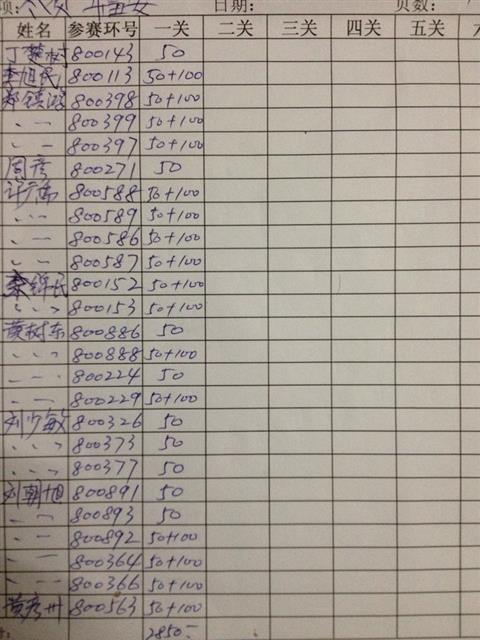 日期: 页数:
姓名 参赛环号 一关 二关 三关 四关 五关
丁楚树 800143 50
李旭民 800113 50+100
郑镇鸿 800398 50+100
、一 800399 50+100
、一 800397 50+100
周彦 800271 50
许广伟 800588 50+100
、、一 800589 50+100
、一 800586 50+100
、一 800587 50+100
李锦长 800152 50+100
、、、 800153 50+100
黄树东 800886 50
、、、 800888 50+100
、一一 800224 50
、一一 800229 50+100
刘少敏 800326 50
、、、 800373 50
、、、 800377 50
刘朝旭 800891 50
、一 800893 50
、一 800892 50+100
、一 800364 50+100
、一 800366 50+100
黄彦州 800563 50+100
2850-